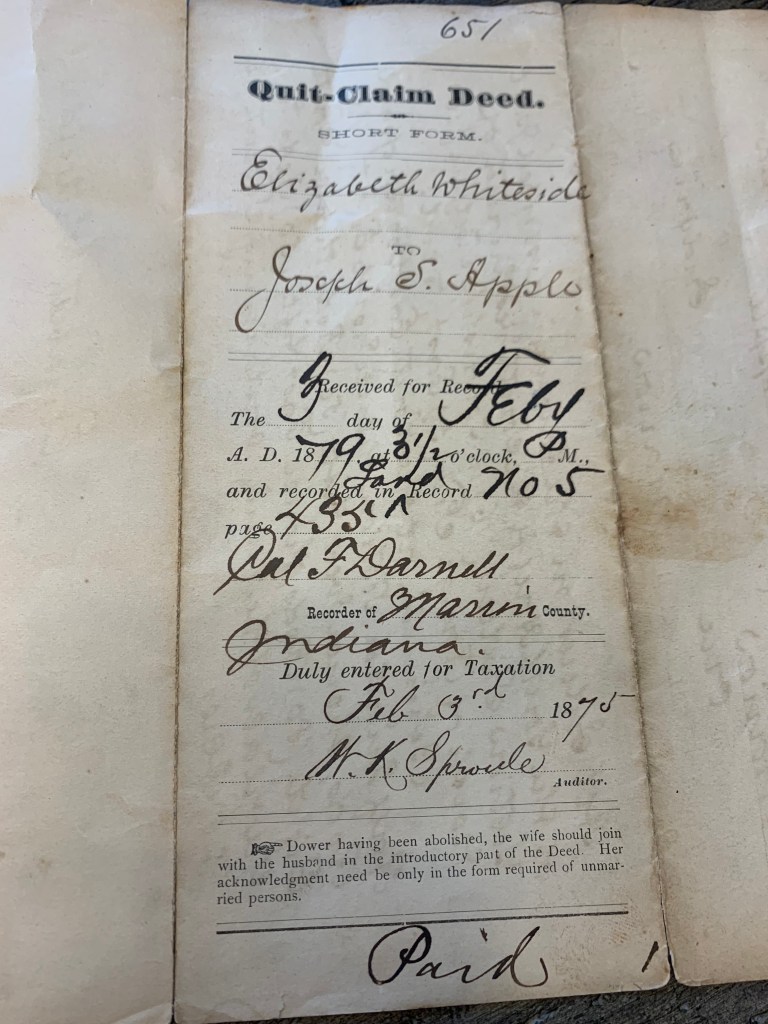 651
Quit-Claim Deed.
SHORT FORM.
Elizabeth Whiteside
TO
Joseph S. Apple
Received for Record
The 3 day of Feby
A. D. 1879, at 3 1/2 o'clock, P M.,
and recorded in Land Record No 5
page 435
Cal F Darnell
Recorder of Marion County.
Indiana.
Duly entered for Taxation
Feb 3rd 1875
W. K. Sproule
Auditor.
☞ Dower having been abolished, the wife should join
with the husband in the introductory part of the Deed. Her
acknowledgment need be only in the form required of unmar-
ried persons.
Paid